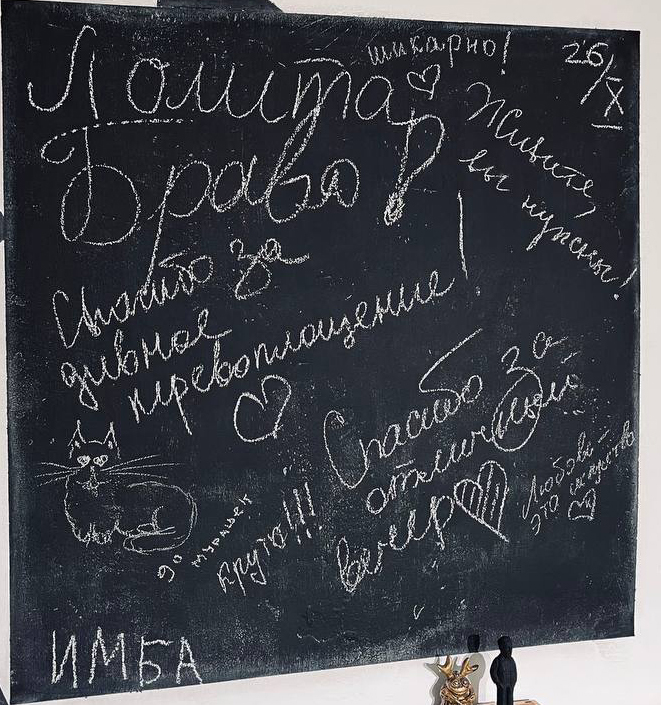 шикарно!
26/IX
Лолита
Браво!
Живите,
вы нужны!
Спасибо за
дивное
перевоплощение!
Спасибо за
отличный
вечер
Любовь –
это искусство
до мурашек
круто!!!
ИМБА